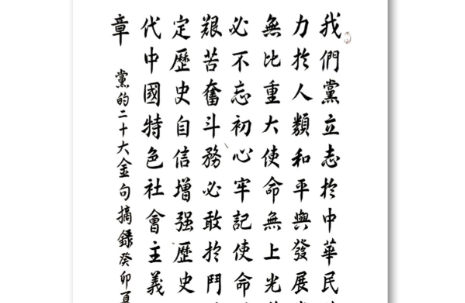 我們黨立志於中華民
力於人類和平與發展
無比重大使命無上光
必不忘初心牢記使命
艱苦奮斗務必敢於鬥
定歷史自信增强歷史
代中國特色社會主義
章
黨的二十大金句摘錄癸卯夏